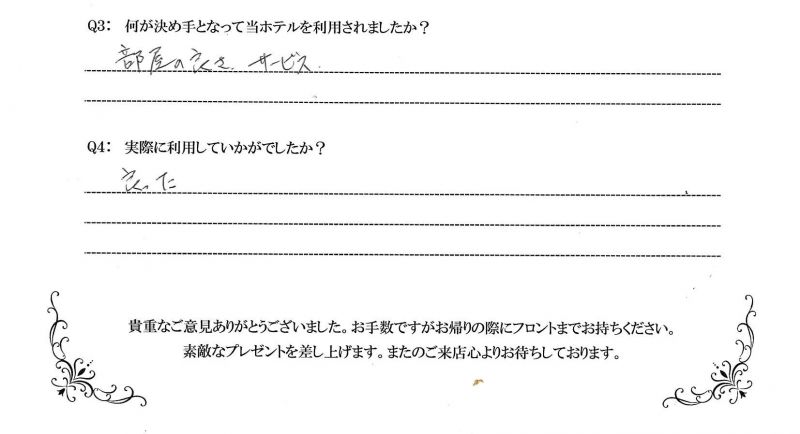 Q3: 何が決め手となって当ホテルを利用されましたか？
部屋の良さ、サービス
Q4: 実際に利用していかがでしたか？
良った
貴重なご意見ありがとうございました。お手数ですがお帰りの際にフロントまでお持ちください。
素敵なプレゼントを差し上げます。またのご来店心よりお待ちしております。